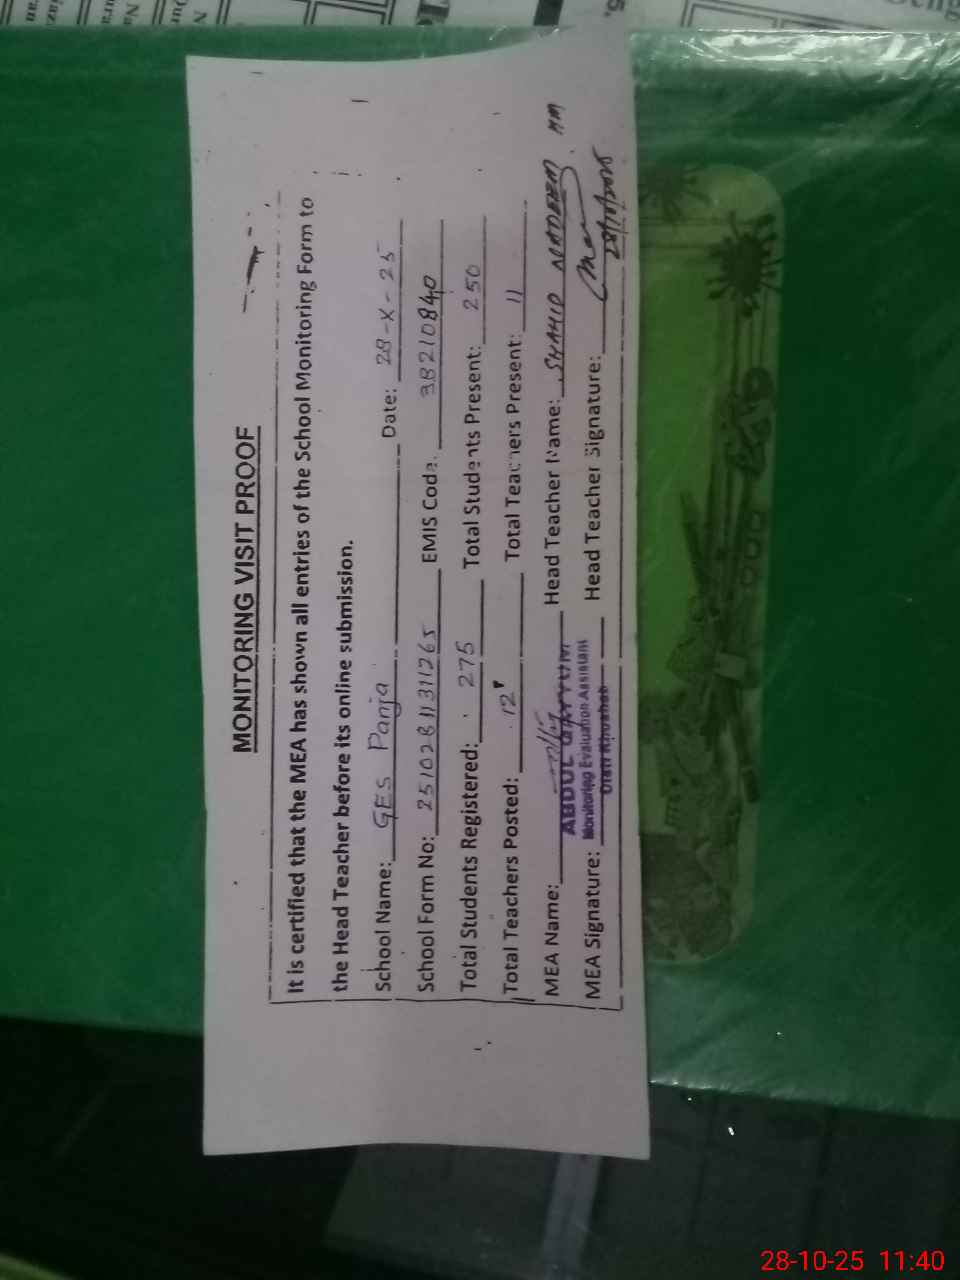 MONITORING VISIT PROOF
It is certified that the MEA has shown all entries of the School Monitoring Form to
the Head Teacher before its online submission.
School Name: GES Panja Date: 28-X-25
School Form No: 25102811311265 EMIS Code: 38210840
Total Students Registered: 275 Total Students Present: 250
Total Teachers Posted: 12 Total Teachers Present: 11
MEA Name: ABDUL QAYYUM Head Teacher Name: SHAHID NADEEM
Monitoring Evaluation Assistant
MEA Signature: Distt Khushab Head Teacher Signature: 28/10/2025
28-10-25 11:40